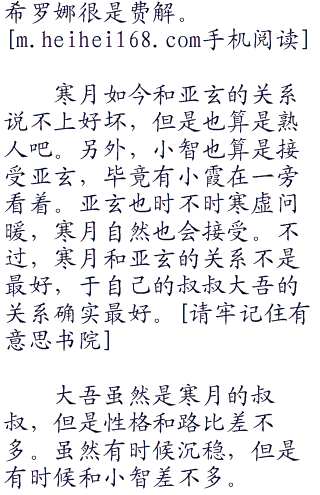 希罗娜很是费解。
[m.heihei168.com手机阅读]
寒月如今和亚玄的关系
说不上好坏，但是也算是熟
人吧。另外，小智也算是接
受亚玄，毕竟有小霞在一旁
看着。亚玄也时不时寒虚问
暖，寒月自然也会接受。不
过，寒月和亚玄的关系不是
最好，于自己的叔叔大吾的
关系确实最好。[请牢记住有
意思书院]
大吾虽然是寒月的叔
叔，但是性格和路比差不
多。虽然有时候沉稳，但是
有时候和小智差不多。